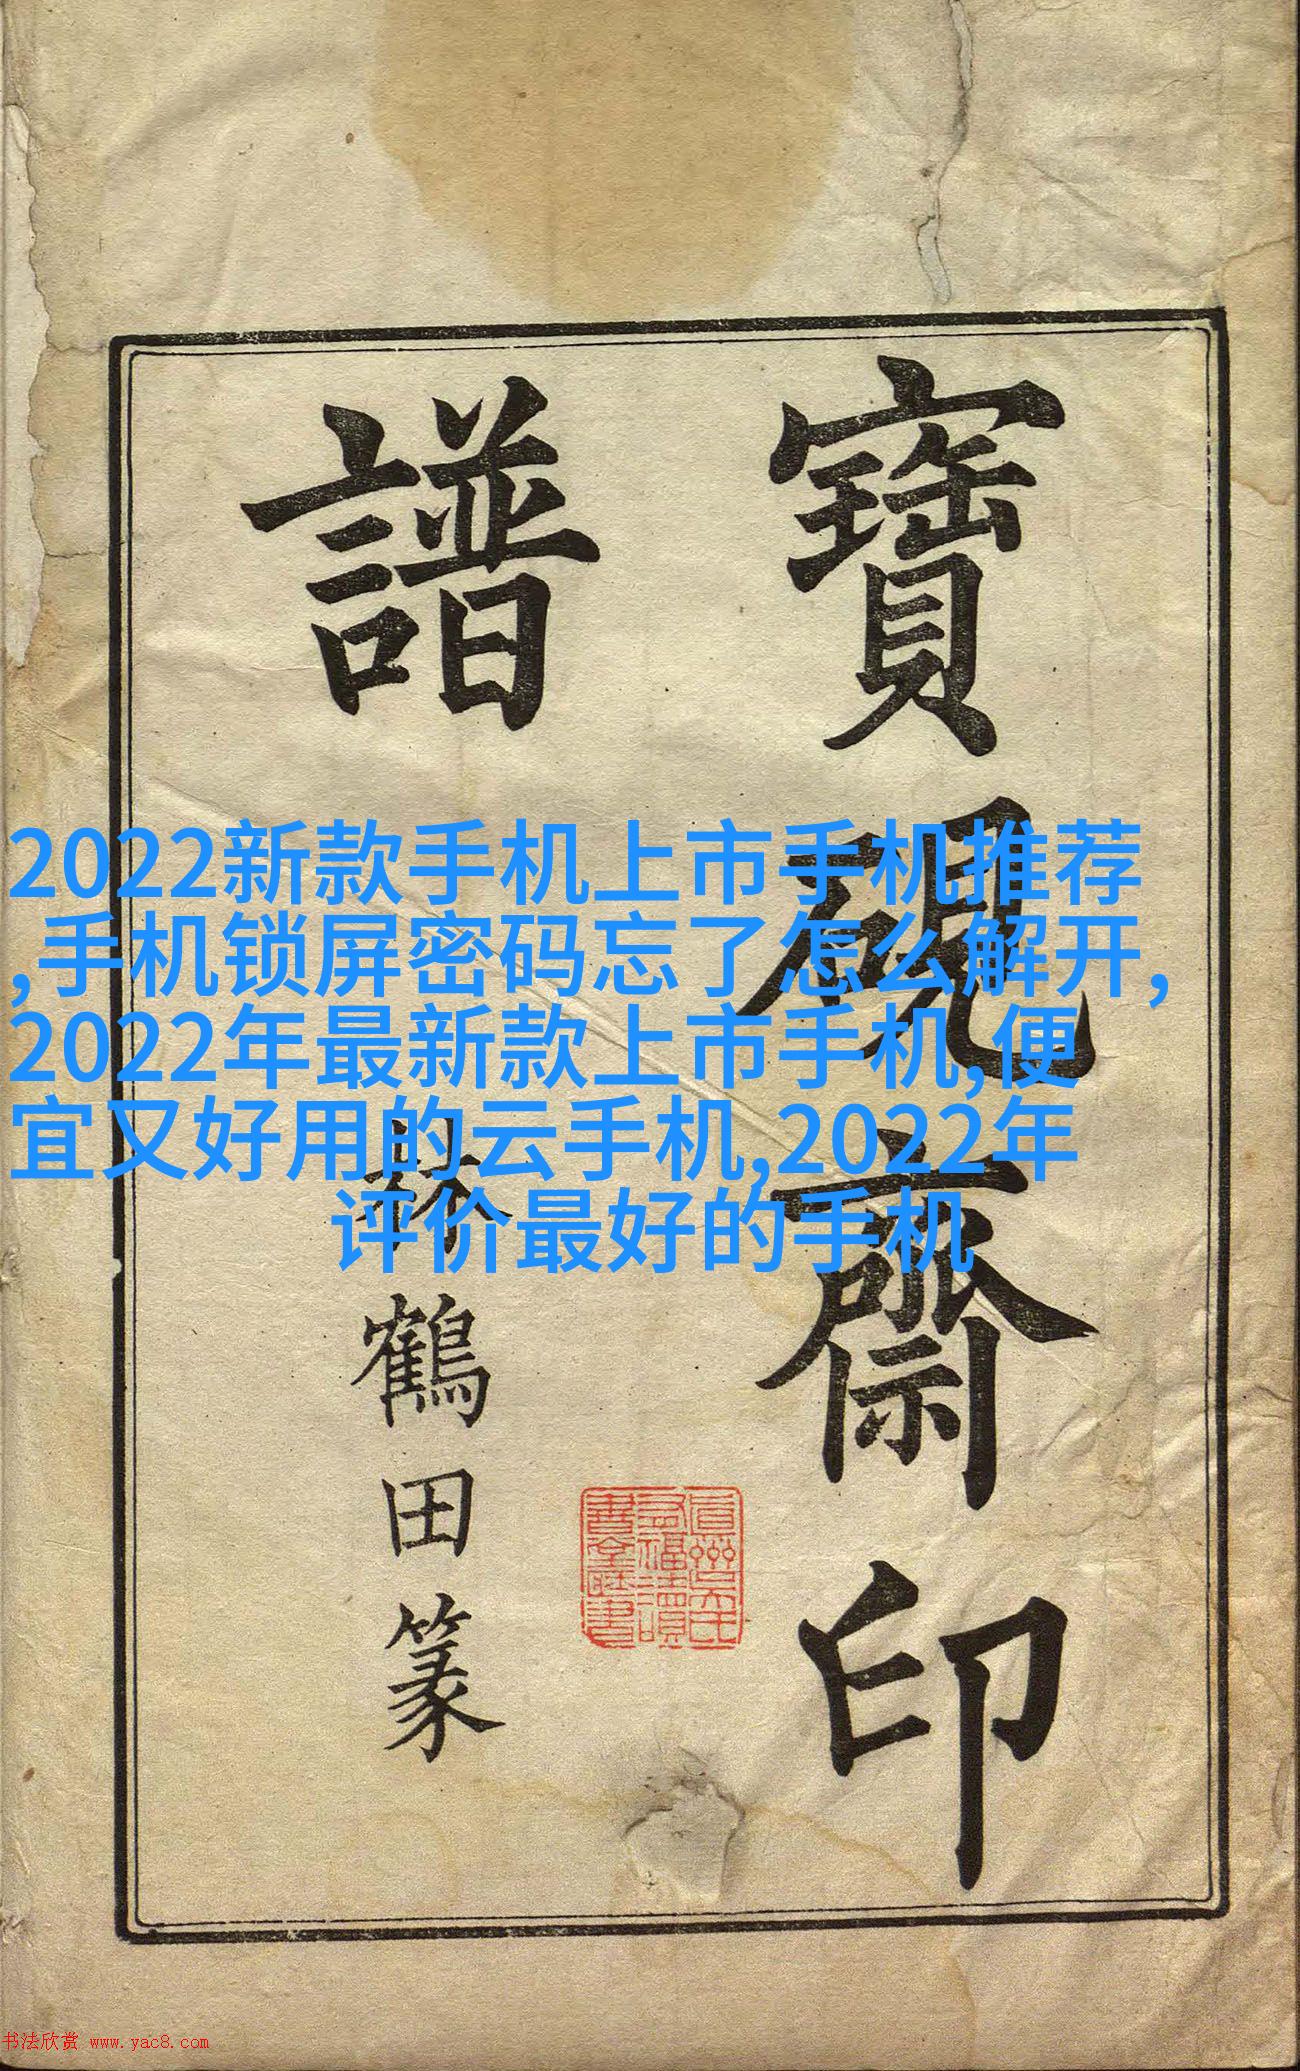 寶硯齋印
譜
林鶴田篆
真州吳氏
有福讀
書堂藏書
2022新款手机上市手机推荐
,手机锁屏密码忘了怎么解开,
2022年最新款上市手机,便
宜又好用的云手机,2022年
评价最好的手机
书法欣赏 www.yac8.com